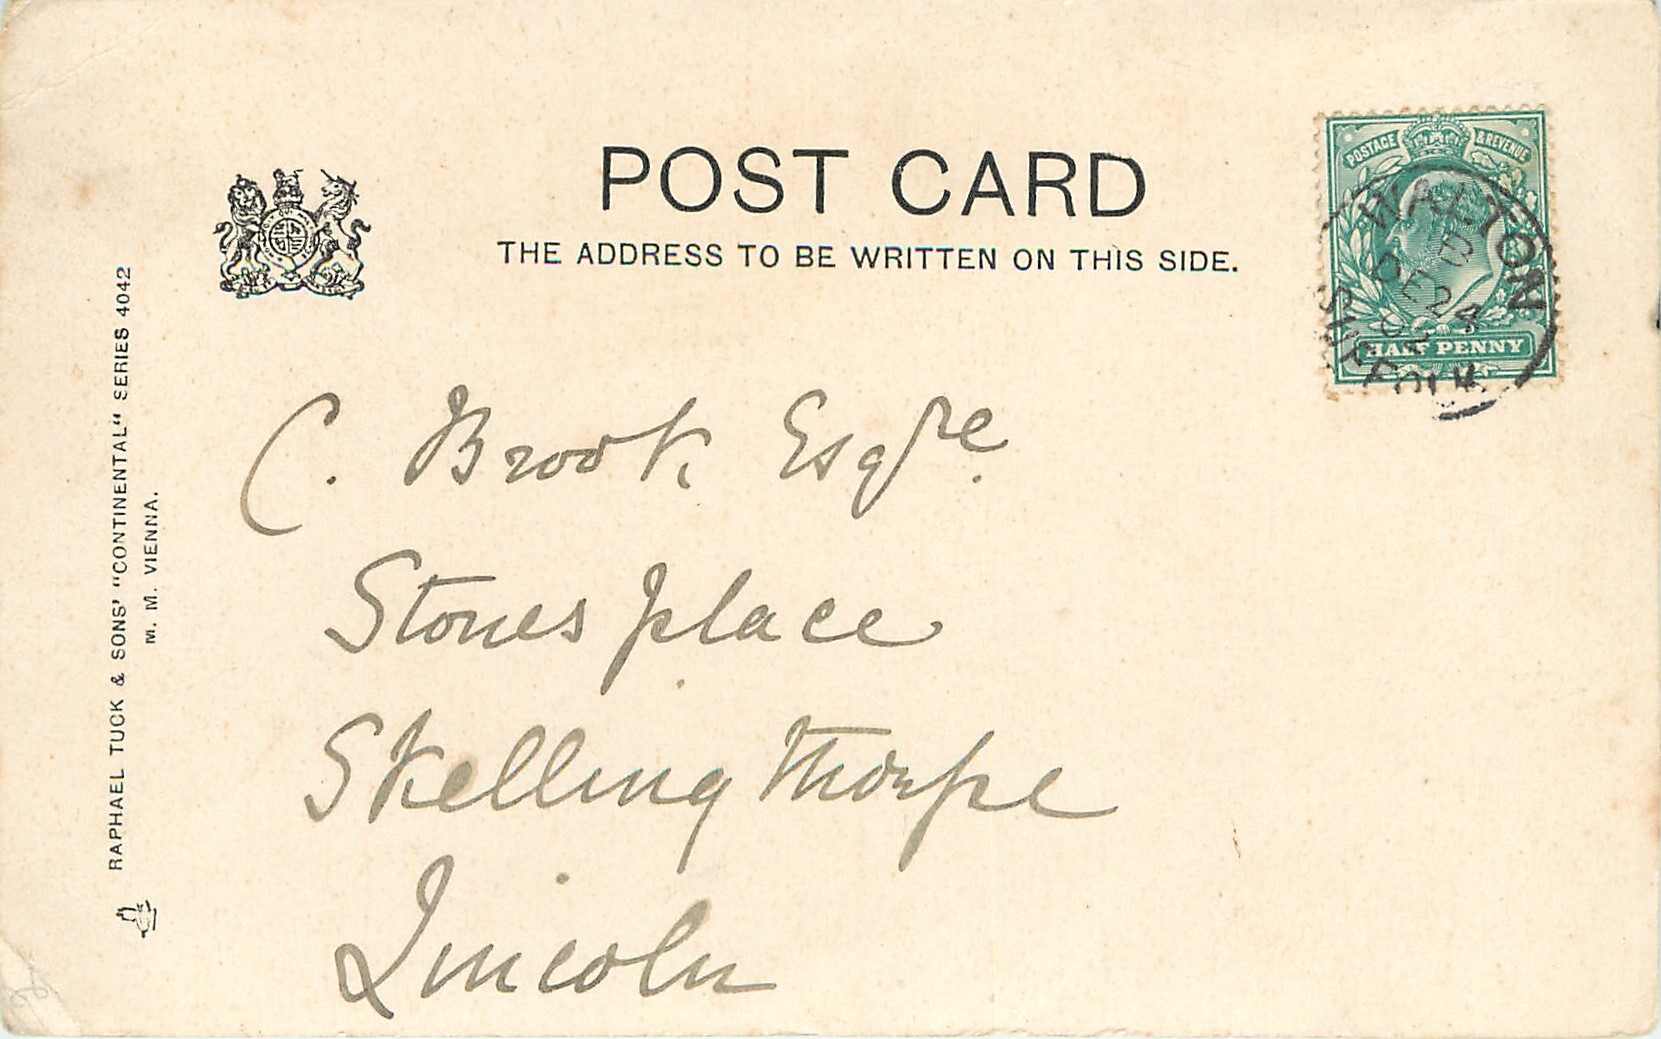 POST CARD
THE ADDRESS TO BE WRITTEN ON THIS SIDE.
RAPHAEL TUCK & SONS' "CONTINENTAL" SERIES 4042
M. M. VIENNA.
POSTAGE & REVENUE
HALF PENNY
WALTON
D
DE 24
SUFFOLK
C. Brook Esqre.
Stones place
Skellingthorpe
Lincoln